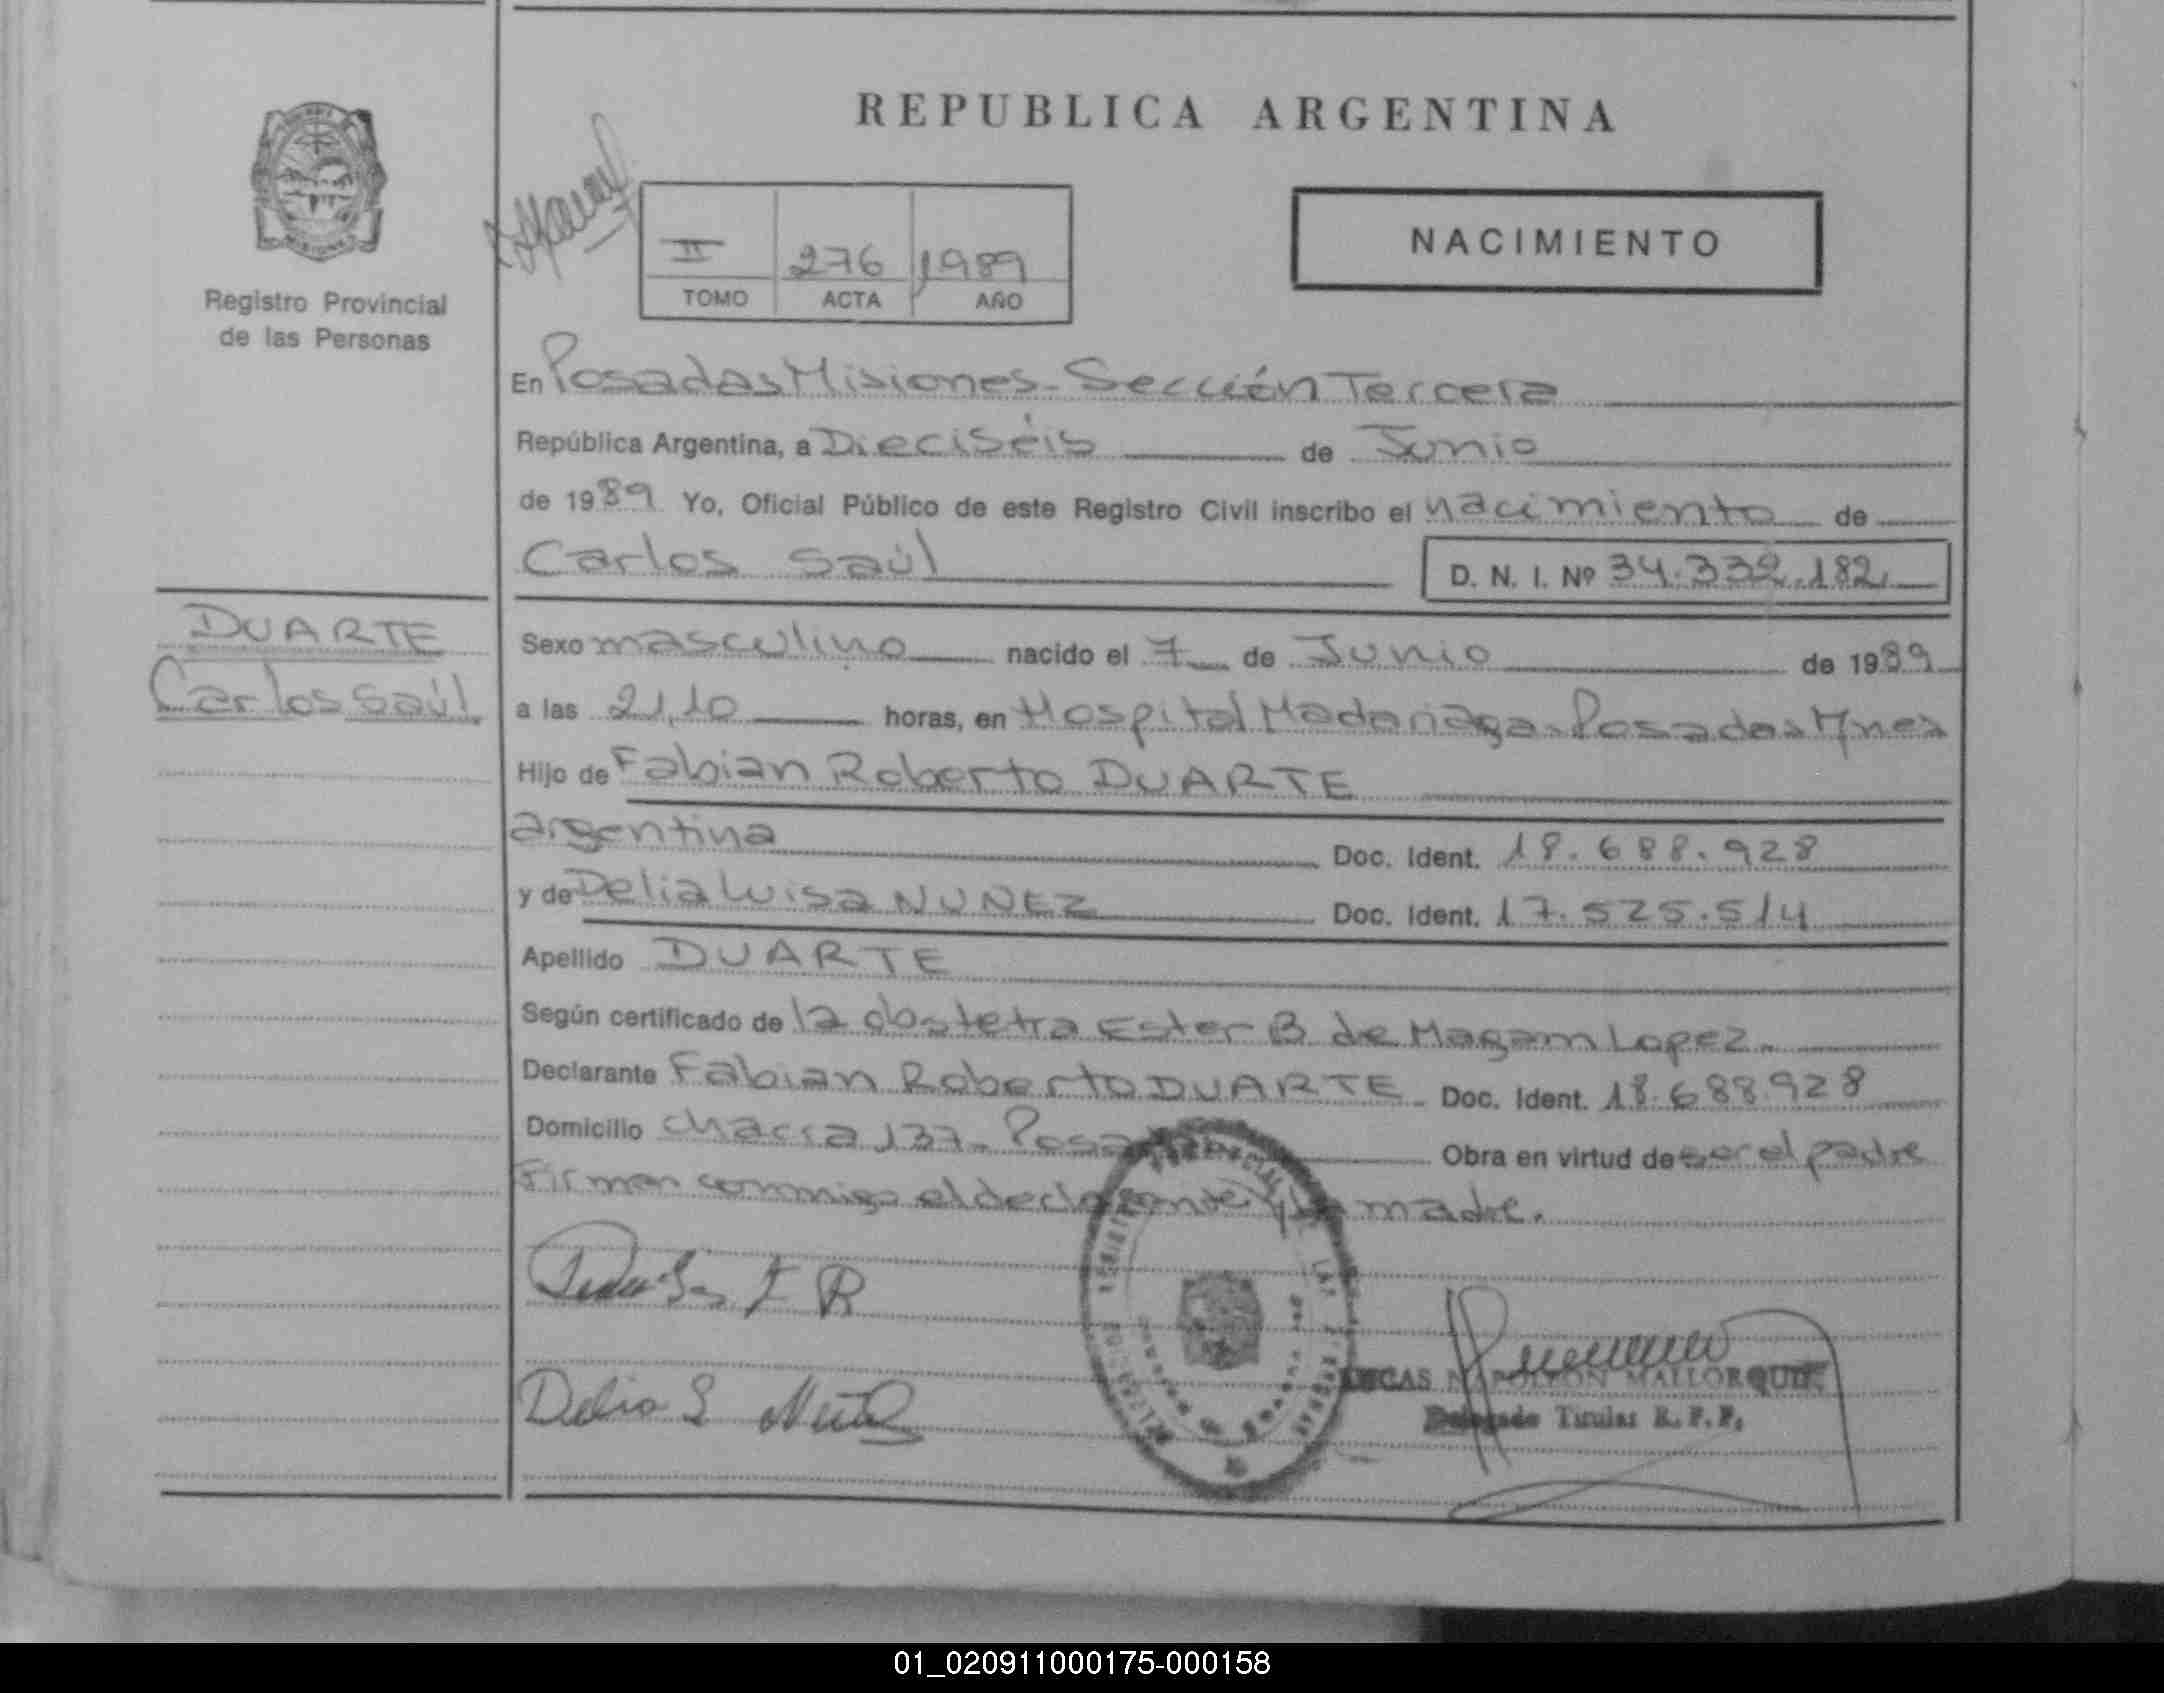 REPUBLICA ARGENTINA
Registro Provincial
de las Personas
II 276 1989
TOMO ACTA AÑO
NACIMIENTO
En Posadas Misiones - Sección Tercera
República Argentina, a Dieciséis de Junio
de 1989 Yo, Oficial Público de este Registro Civil inscribo el nacimiento de
Carlos Saúl D. N. I. Nº 34.332.182
DUARTE
Carlos Saúl
Sexo masculino nacido el 7 de Junio de 1989
a las 21,10 horas, en Hospital Madariaga - Posadas Mnes
Hijo de Fabian Roberto DUARTE
argentina Doc. Ident. 18.688.928
y de Delia Luisa NUNEZ Doc. Ident. 17.525.514
Apellido DUARTE
Según certificado de la obstetra Ester B de Magam Lopez.
Declarante Fabian Roberto DUARTE Doc. Ident. 18.688.928
Domicilio chacra 137 - Posadas Obra en virtud de ser el padre
Firman conmigo el declarante y la madre.
Delia L
LUCAS NAPOLEON MALLORQUIN
Delegado Titular R. P. P.
01_020911000175-000158